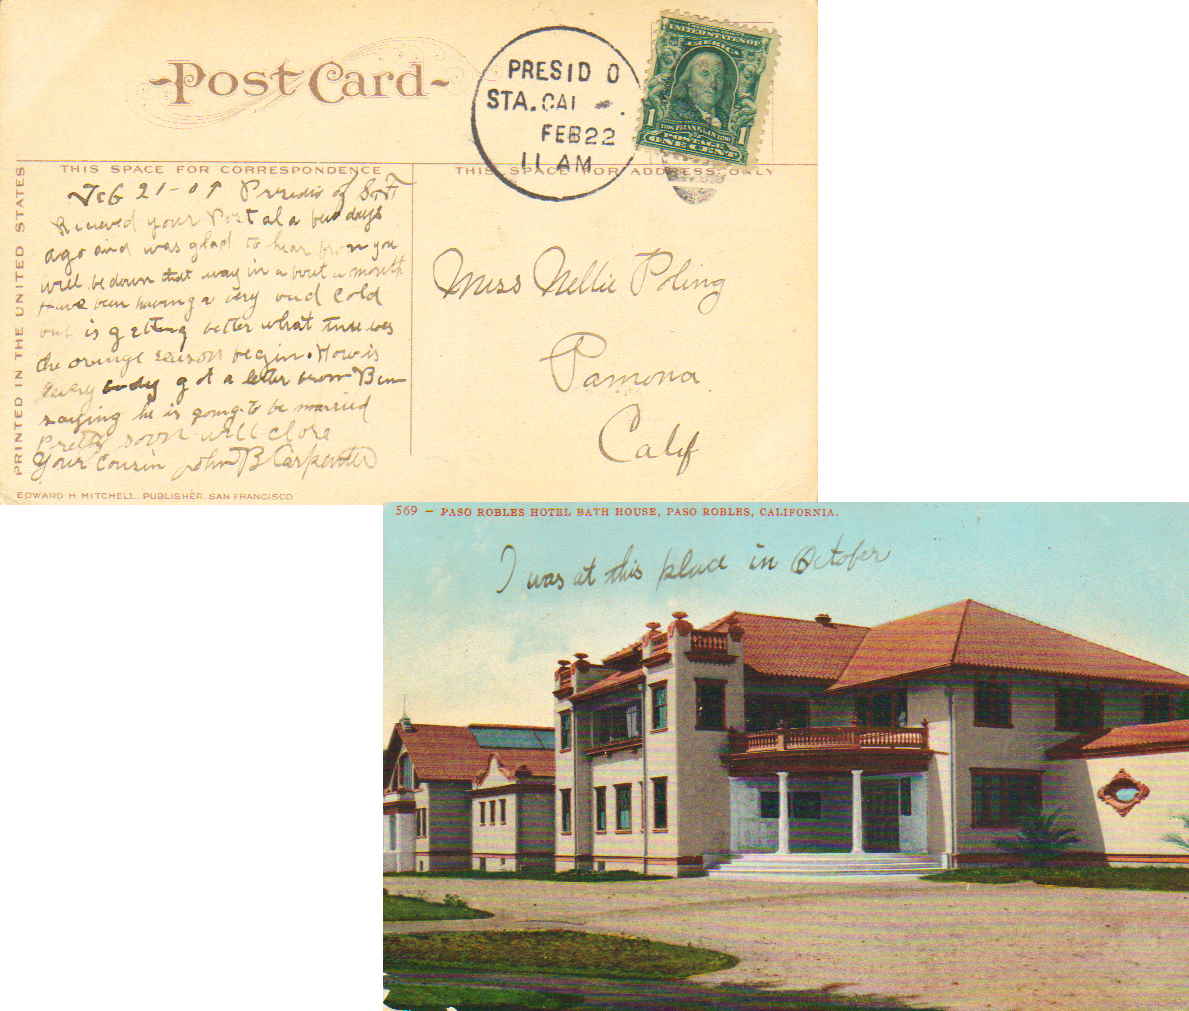 Post Card
PRESIDO
STA. CAL
FEB 22
11 AM
UNITED STATES OF
AMERICA
1 1
POSTAGE
ONE CENT
THIS SPACE FOR CORRESPONDENCE
THIS SPACE FOR ADDRESS ONLY
PRINTED IN THE UNITED STATES
Feb 21-09 Presidio of S.F
Recieved your Postal a few days
ago and was glad to hear from you
will be down that way in a bout a month
have been having a very bad cold
but is getting better what time does
the orange season begin. How is
every body got a letter from Ben
saying he is going to be married
Pretty soon will close
Your Cousin John B Carpenter
Miss Nellie Poling
Pamona
Calif
EDWARD H. MITCHELL, PUBLISHER, SAN FRANCISCO
569 — PASO ROBLES HOTEL BATH HOUSE, PASO ROBLES, CALIFORNIA.
I was at this place in October